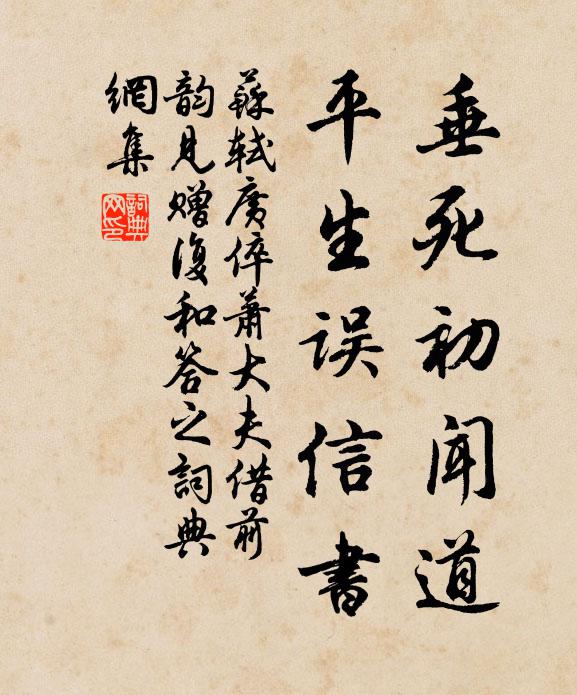 垂死初聞道
平生误信書
蘇軾廣倅蕭大夫借前
韵見赠復和答之詞典
網集
詞典
网印